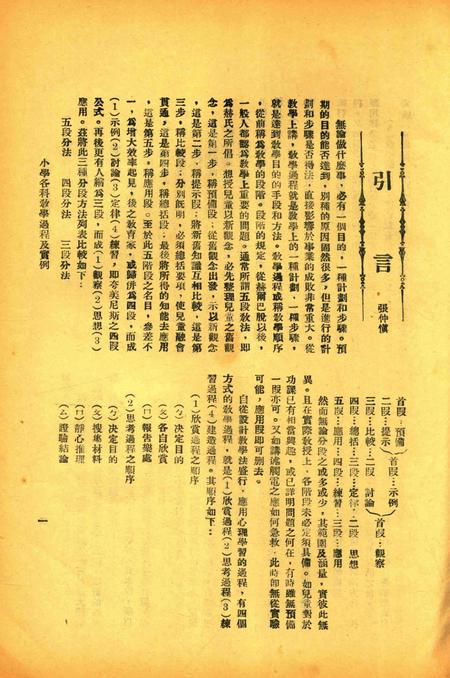 引言
張仲愼
無論做什麼事，必有一個目的，一種計劃和步驟。預
期的目的能否達到，別種的原因雖然很多，但是進行的計
劃和步驟是否得法，直接影響於事業的成敗非常重大。從
教學上講，教學過程就是教學上的一種計劃，一種步驟，
就是達到教學目的的手段和方法。教學過程或稱教學順序
，從前稱爲教學的段階。段階的規定，從赫爾巴脫以後，
一般人都認爲教學上重要的問題。通常所謂五段敎法，即
爲赫氏之所倡。想授兒童以新觀念，必先整理兒童之舊觀
念，這是第一步，稱預備段；從舊觀念出發，示以新觀念
，這是第二步，稱提示段；將新舊知識互相比較，這是第
三步，稱比較段；分別既明，必須總括要項，使兒童融會
貫通，這是第四步，稱總括段；最後將所得的知能去應用
，這是第五步，稱應用段。至於此五階段之名目，參差不
一，爲增大效率起見，後之敎育家，或歸併爲四段，而成
（1）示例（2）討論（3）定律（4）練習，即夸美尼斯之四段
公式。再後更有人縮爲三段，而成（1）觀察（2）思想（3）
應用。茲將此三種分段方法列表比較如下：
五段分法　四段分法　三段分法
首段：預備
二段…提示　首段…示例
三段…比較…二段　討論　首段…觀察
四段…總括…三段…定律…二段　思想
五段…應用…四段…練習…三段…應用
然而無論分段之或多或少，其範圍及涵量，實彼此無
異。且在實際敎授上，各階段未必定須具備。如兒童對於
功課已有相當興趣，或已詳明問題之何在，有時雖無預備
一段亦可。又如講述觸電之應如何急救，此時卽無從實驗
可能，應用段卽可删去。
自從設計敎學法盛行，應用心理學習的過程，有四個
方式的敎學過程，就是（1）欣賞過程（2）思考過程（3）練
習過程（4）建造過程。其順序如下：
（1）欣賞過程之順序
（ㄅ）決定目的
（ㄆ）各自欣賞
（ㄇ）報告樂處
（2）思考過程之順序
（ㄅ）決定目的
（ㄆ）搜集材料
（ㄇ）靜心推理
（ㄈ）證驗結論
小學各科敎學過程及實例
一